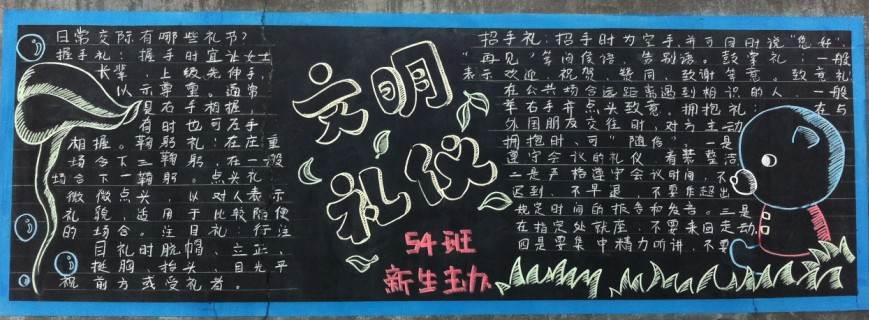 日常交际有哪些礼节?
握手礼:握手时宜让女士
长辈,上级先伸手,
以示尊重。通常
是右手相握
有时也可左手
相握。鞠躬礼:在庄重
场合下三鞠躬,在一般
场合下一鞠躬。点头礼
微微点头,以对人表示
礼貌,适用于比较随便
的场合。注目礼:行注
目礼时脱帽、立正、
挺胸、抬头 目光平
视前方或受礼者。
文明
礼仪
54班
新生主办
招手礼:招手时为空手,并可同时说"您好",
"再见"等问候语,告别语。鼓掌礼:一般
表示欢迎,祝贺,赞同,致谢等意。致意礼
在公共场合远距离遇到相识的人,一般
举右手并点头致意。拥抱礼: 在与
外国朋友交往时,对方主动
拥抱时、可"随俗"。一是
遵守会议的礼仪 着装整洁
二是严格遵守会议时间,不
迟到,不早退,不要超出
规定时间的报告和发言。三是
在指定处就座:不要来回走动,
四是要集中精力听讲,不要